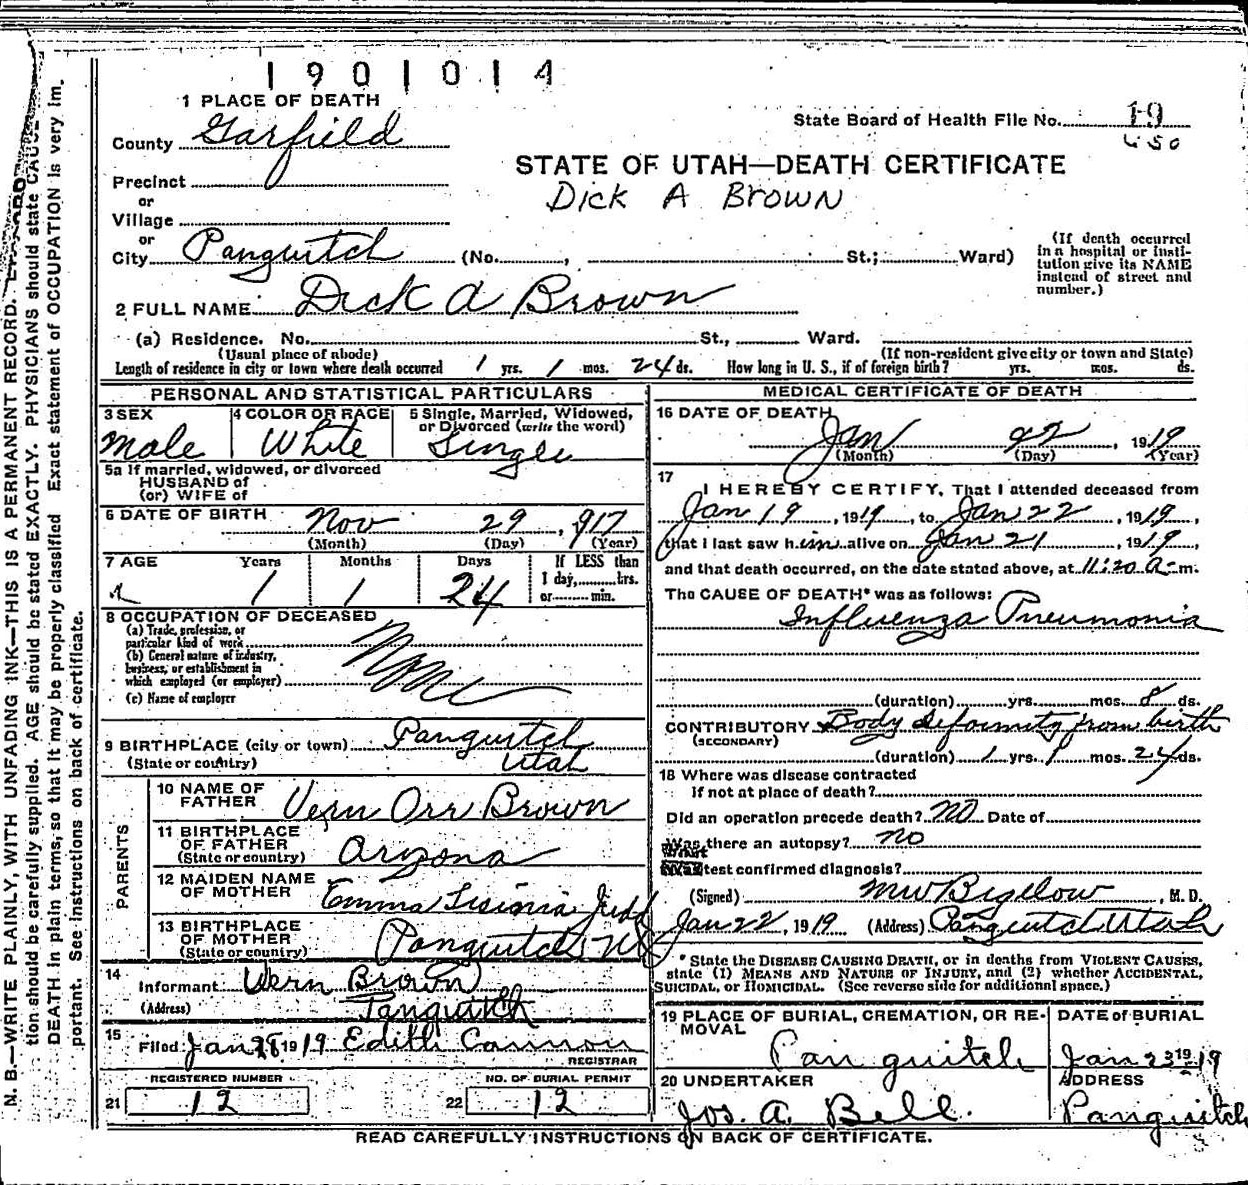 1901014
1 PLACE OF DEATH
State Board of Health File No. 19
450
County Garfield
STATE OF UTAH—DEATH CERTIFICATE
Dick A Brown
Precinct
or
Village
or
City Panguitch (No. , St.; Ward)
(If death occurred in a hospital or insti-
tution give its NAME instead of street and number.)
2 FULL NAME Dick A Brown
(a) Residence. No. St., Ward.
(Usual place of abode) (If non-resident give city or town and State)
Length of residence in city or town where death occurred 1 yrs. 1 mos. 24 ds. How long in U. S., if of foreign birth? yrs. mos. ds.
PERSONAL AND STATISTICAL PARTICULARS
3 SEX Male
4 COLOR OR RACE White
5 Single, Married, Widowed, or Divorced (write the word) Single
5a If married, widowed, or divorced
HUSBAND of
(or) WIFE of
6 DATE OF BIRTH Nov 29, 917
(Month) (Day) (Year)
7 AGE Years Months Days If LESS than
1 1 24 1 day, hrs.
or min.
8 OCCUPATION OF DECEASED
(a) Trade, profession, or
particular kind of work
(b) General nature of industry,
business, or establishment in
which employed (or employer)
(c) Name of employer
None
9 BIRTHPLACE (city or town) Panguitch
(State or country) Utah
PARENTS
10 NAME OF FATHER Vern Orr Brown
11 BIRTHPLACE OF FATHER (State or country) Arizona
12 MAIDEN NAME OF MOTHER Emma Judd
13 BIRTHPLACE OF MOTHER (State or country) Panguitch
14 Informant Vern Brown
(Address) Panguitch
15 Filed Jan 28 1919 Edith Cannon
REGISTRAR
REGISTERED NUMBER NO. OF BURIAL PERMIT
21 12 22 12
MEDICAL CERTIFICATE OF DEATH
16 DATE OF DEATH
Jan 22, 1919
(Month) (Day) (Year)
17
I HEREBY CERTIFY, That I attended deceased from
Jan 19, 1919, to Jan 22, 1919,
that I last saw him alive on Jan 21, 1919,
and that death occurred, on the date stated above, at 11:20 a m.
The CAUSE OF DEATH* was as follows:
Influenza Pneumonia
(duration) yrs. mos. 8 ds.
CONTRIBUTORY Body deformity from birth
(SECONDARY)
(duration) 1 yrs. 1 mos. 24 ds.
18 Where was disease contracted
If not at place of death?
Did an operation precede death? NO Date of
Was there an autopsy? NO
What test confirmed diagnosis?
(Signed) MW Bigelow, M. D.
Jan 22, 1919 (Address) Panguitch Utah
* State the DISEASE CAUSING DEATH, or in deaths from VIOLENT CAUSES,
state (1) MEANS AND NATURE OF INJURY, and (2) whether ACCIDENTAL,
SUICIDAL, or HOMICIDAL. (See reverse side for additional space.)
19 PLACE OF BURIAL, CREMATION, OR RE-
MOVAL
Panguitch
DATE of BURIAL
Jan 23 1919
20 UNDERTAKER
Jos. A. Bell.
ADDRESS
Panguitch
READ CAREFULLY INSTRUCTIONS ON BACK OF CERTIFICATE.
N. B.—WRITE PLAINLY, WITH UNFADING INK—THIS IS A PERMANENT RECORD.
tion should be carefully supplied. AGE should be stated EXACTLY. PHYSICIANS should state CAUSE
DEATH in plain terms, so that it may be properly classified Exact statement of OCCUPATION is very im.
portant. See instructions on back of certificate.